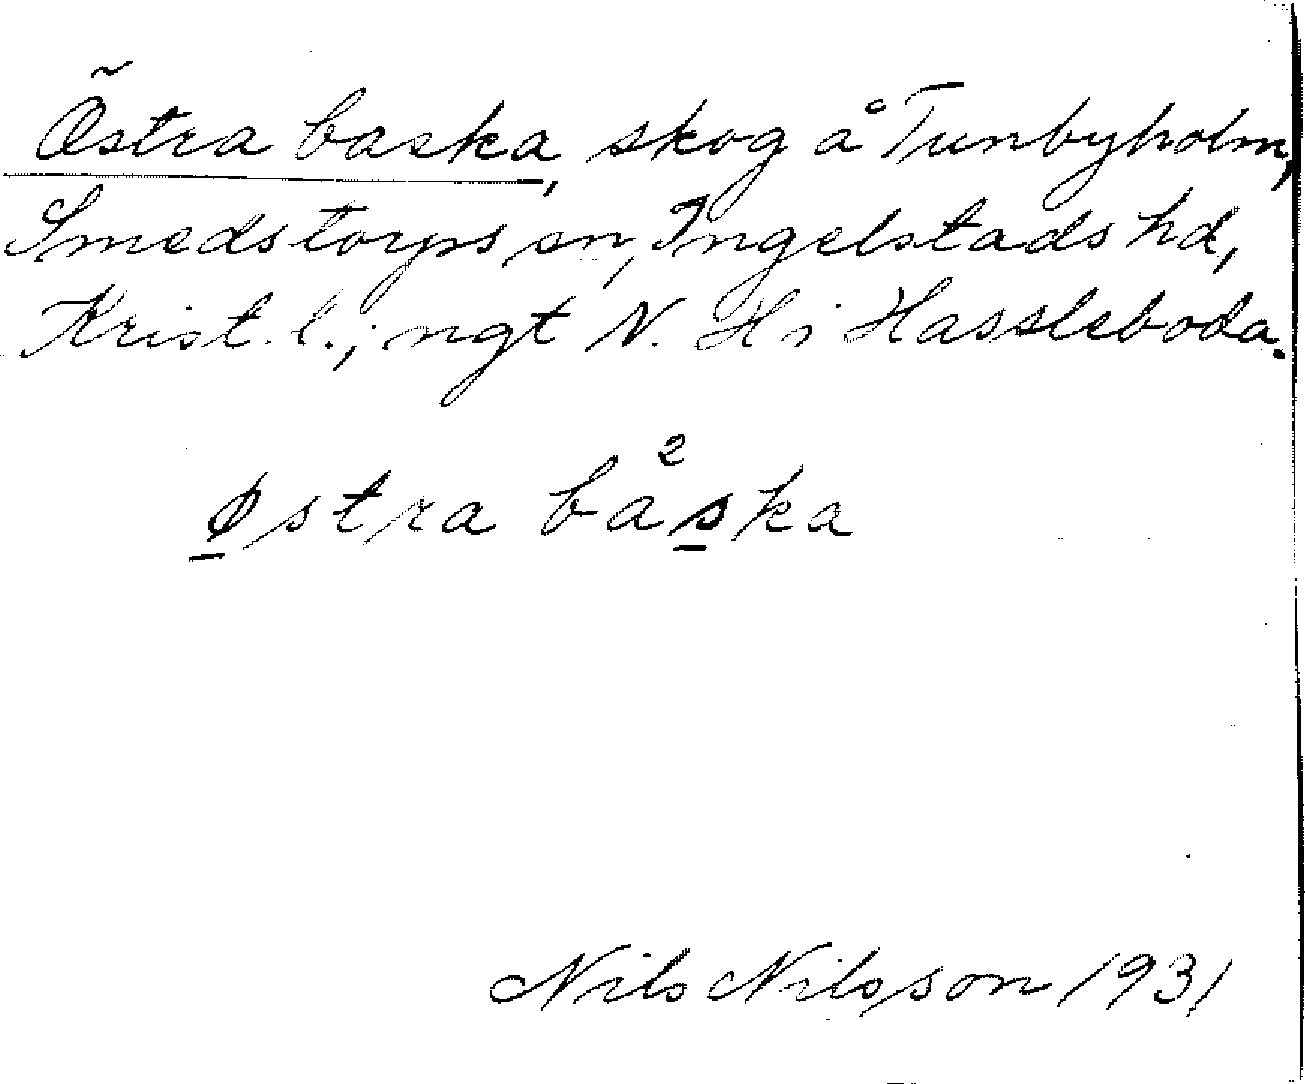 Östra baska, skog å Tunbyholm,
Smedstorps sn, Ingelstads hd,
Krist. l.; ngt N. H i Hassleboda.
østra ba²ska
Nils Nilsson 1931